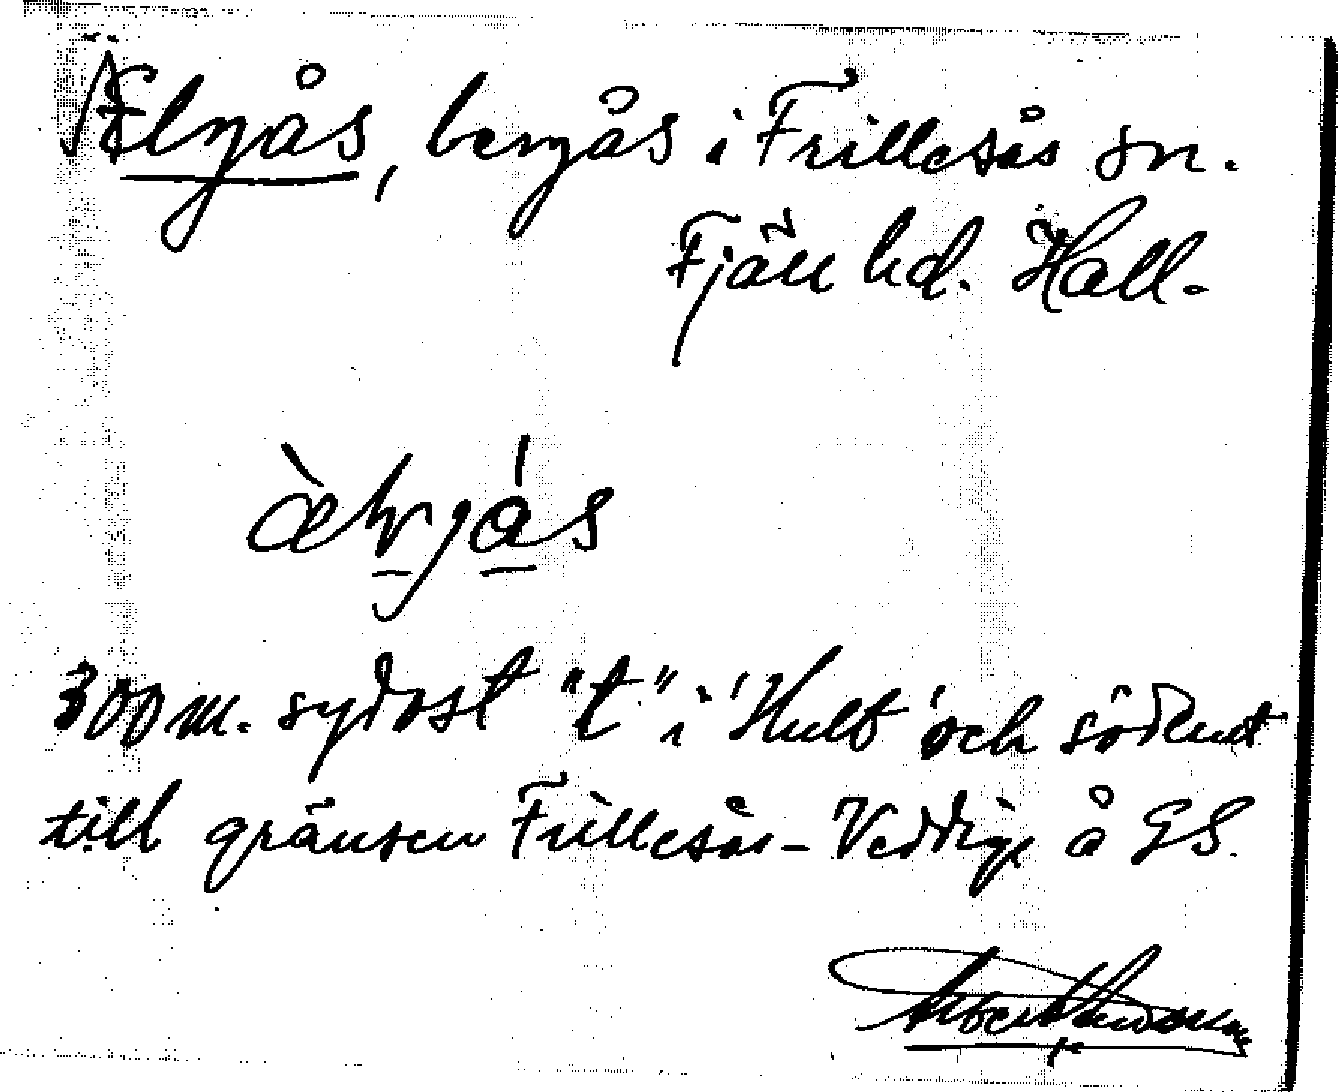 Älgås, bergås i Frillesås sn.
Fjäre hd. Hall.
300 m. sydost "t" i 'Hult' och söderut
till gränsen Frillesås - Veddige å GS.